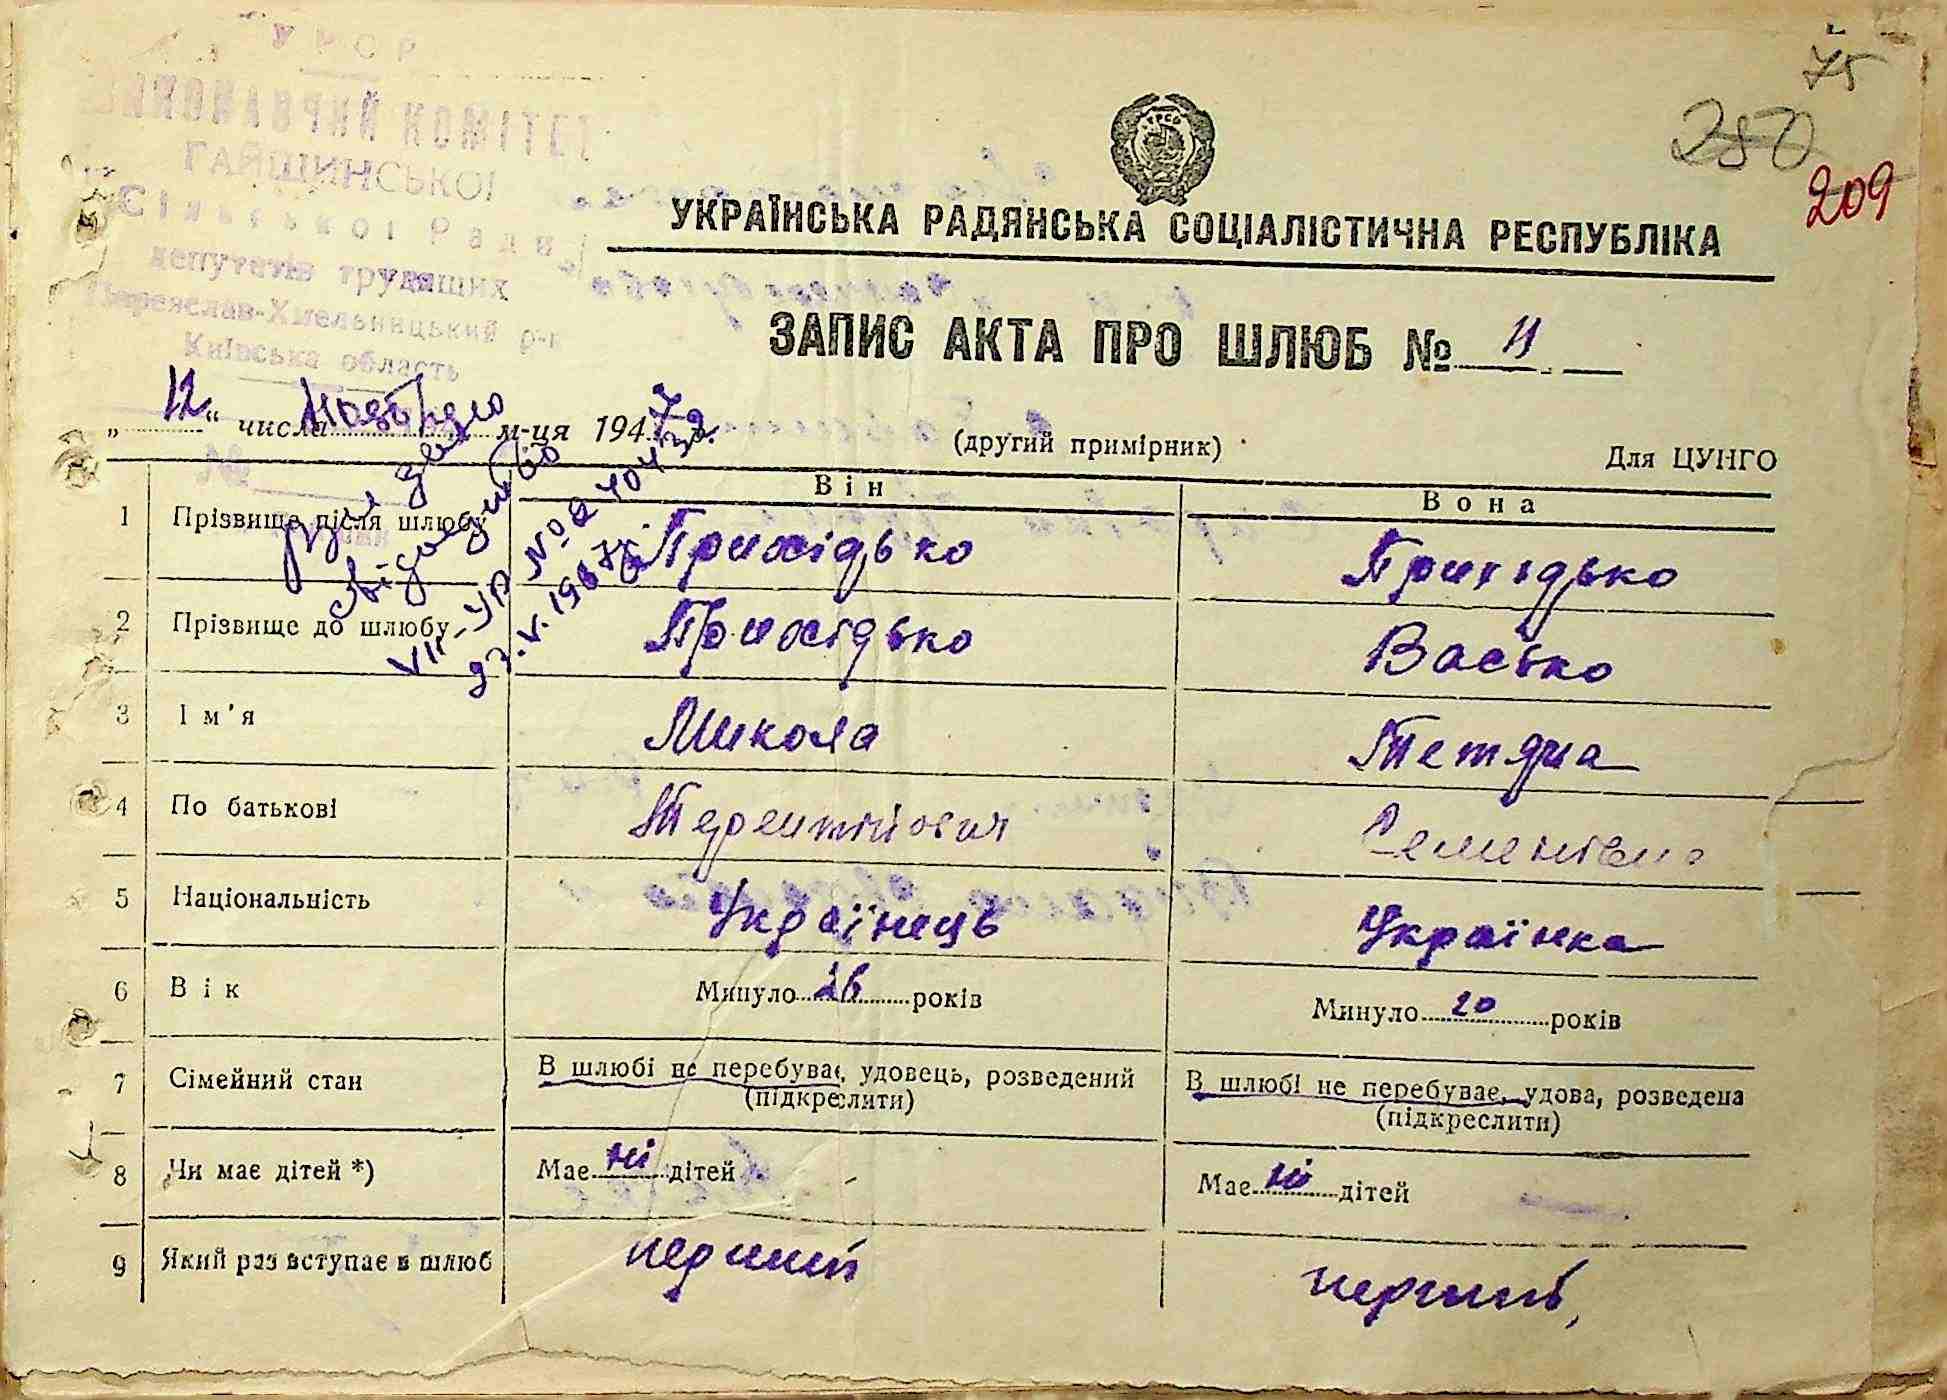 УРСР
ВИКОНАВЧИЙ КОМІТЕТ
ГАЙШИНСЬКОЇ
Сільської Ради
депутатів трудящих
Переяслав-Хмельницький р-н
Київська область
№
75
250
209
УКРАЇНСЬКА РАДЯНСЬКА СОЦІАЛІСТИЧНА РЕСПУБЛІКА
ЗАПИС АКТА ПРО ШЛЮБ № 11
„ 12 “ числа м-ця 1947 р.
(другий примірник)
Для ЦУНГО
Він Вона
1 Прізвище після шлюбу Прихідько Прихідько
2 Прізвище до шлюбу Прихідько Васько
3 Ім'я Микола Тетяна
4 По батькові Терентійович Семенівна
5 Національність Українець Українка
6 Вік Минуло 26 років Минуло 20 років
7 Сімейний стан В шлюбі не перебуває, удовець, розведений В шлюбі не перебуває, удова, розведена
(підкреслити) (підкреслити)
8 Чи має дітей *) Має ні дітей Має ні дітей
9 Який раз вступає в шлюб перший перший,
свідоцтво
VII-УР №